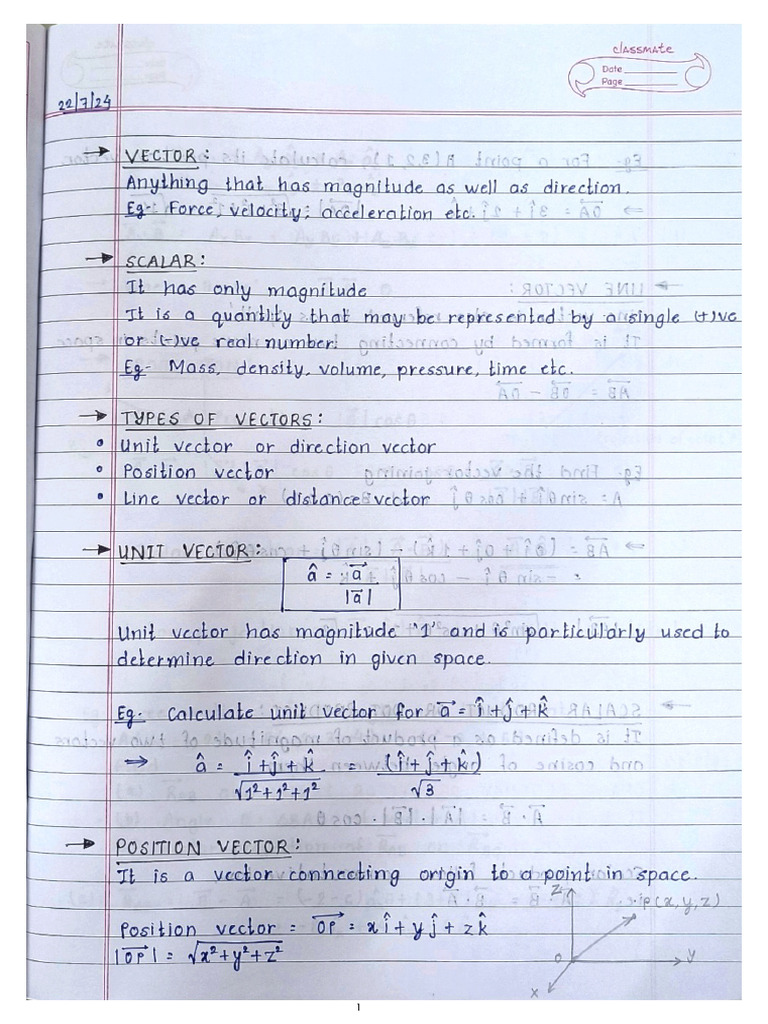 classmate
Date
Page
22/7/24
→ VECTOR:
Anything that has magnitude as well as direction.
Eg- Force, velocity, acceleration etc.
→ SCALAR:
It has only magnitude
It is a quantity that may be represented by a single (+)ve
or (-)ve real number.
Eg- Mass, density, volume, pressure, time etc.
→ TYPES OF VECTORS:
• Unit vector or direction vector
• Position vector
• Line vector or distance vector
→ UNIT VECTOR:
â = a⃗
|a⃗|
Unit vector has magnitude "1" and is particularly used to
determine direction in given space.
Eg- Calculate unit vector for a⃗ = î + ĵ + k̂
⇒ â = î + ĵ + k̂ = (î + ĵ + k̂)
√1² + 1² + 1² √3
→ POSITION VECTOR:
It is a vector connecting origin to a point in space.
Z P(x, y, z)
Position vector = OP⃗ = x î + y ĵ + z k̂
|OP⃗| = √x² + y² + z²
O Y
X
1